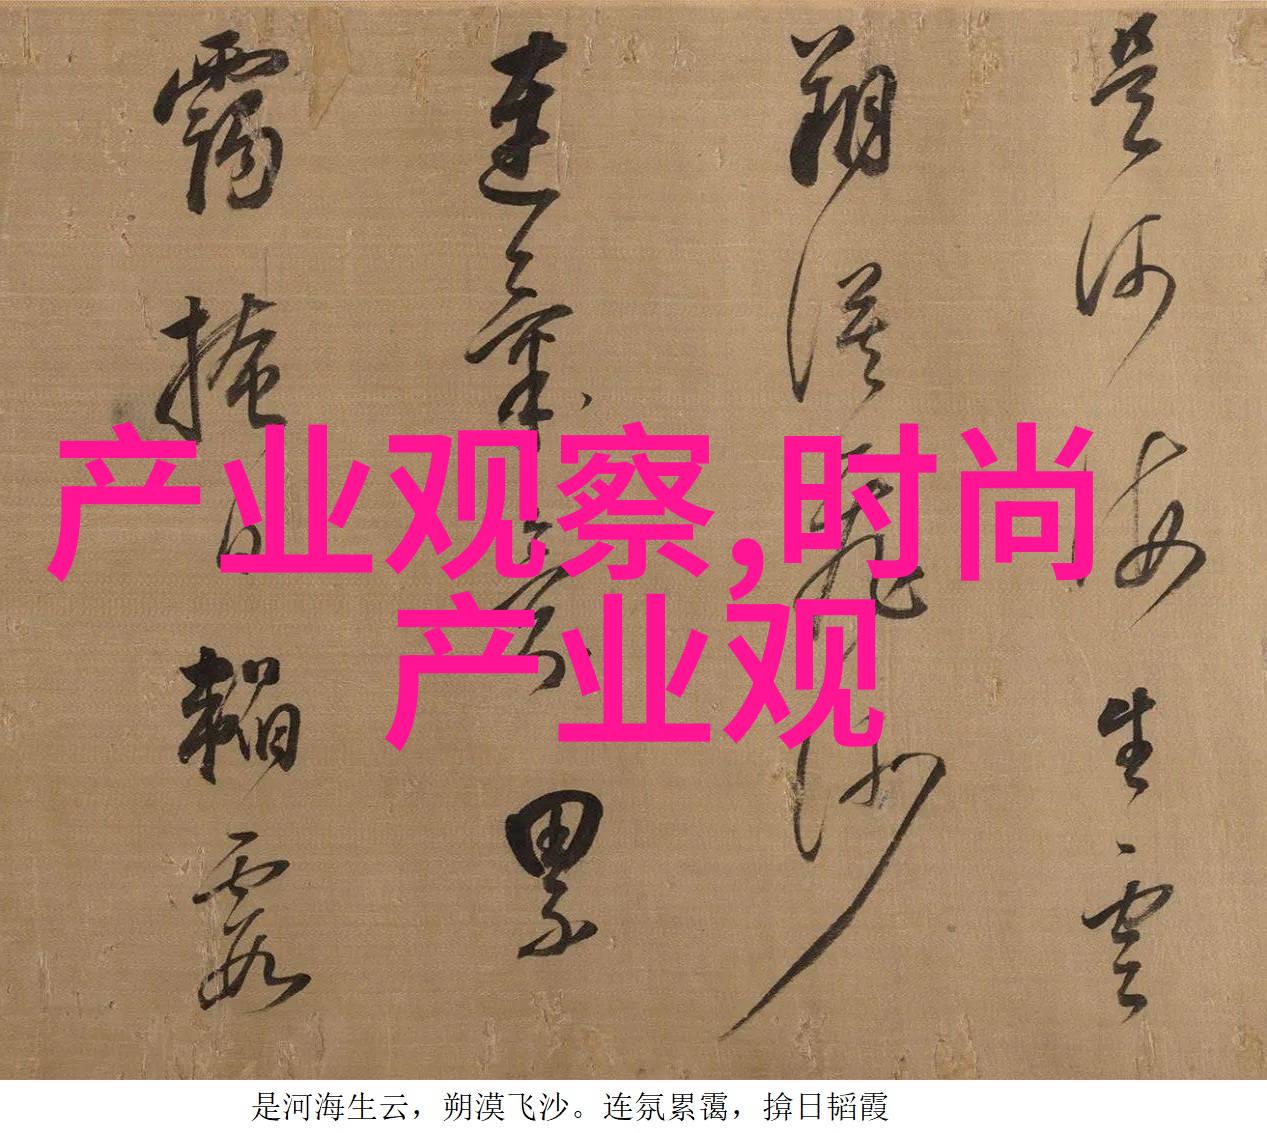 是河海生雲
朔漠飛沙
連氛累
靄掩日韜霞
产业观察,时尚
产业观
是河海生云，朔漠飞沙。连氛累霭，揜日韬霞